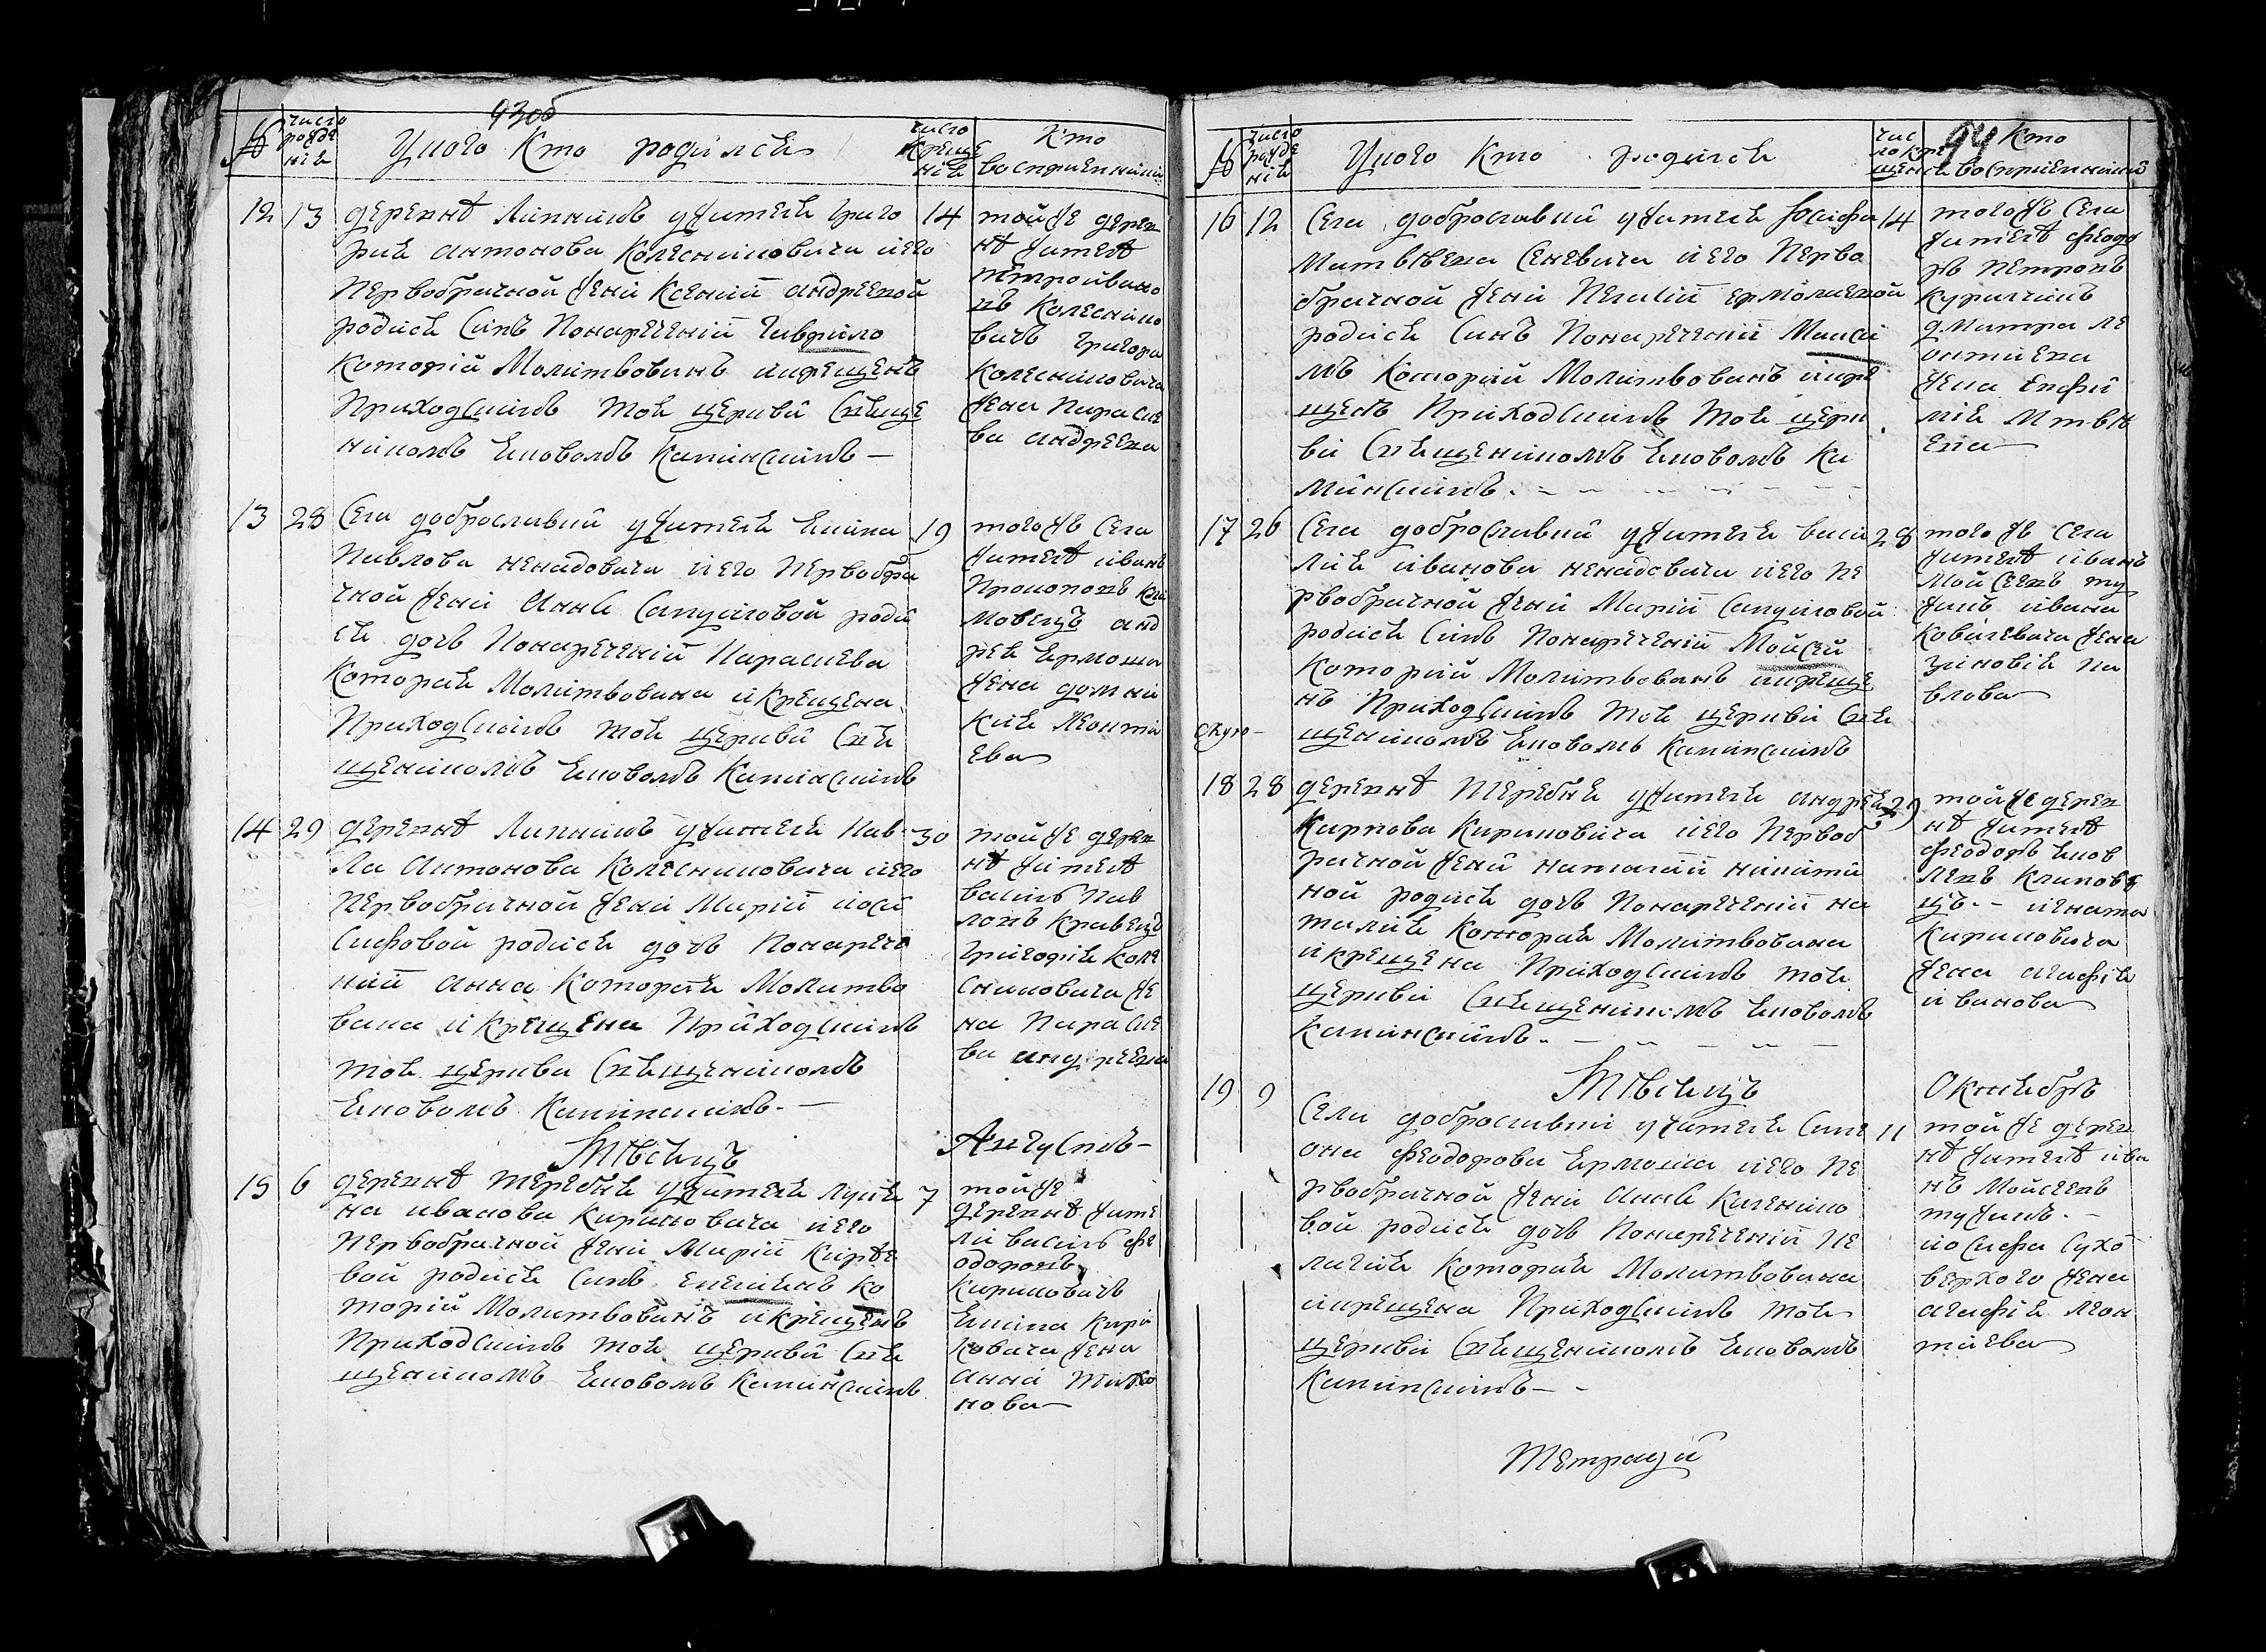 93об
№
число рожде нія
У кого Кто родился
число Креще нія
Кто воспріемники
12 13
деревнѣ Липникъ жителя Григо
рия антонова Колесниковича иего
Первобрачной жени Ксении андреевой
родися синъ Понаречений Гаврило
Которій Молитвованъ икрещенъ
Приходскимъ тоя церкви Свяще
никомъ Яковомъ Каминскимъ —
14
тойже дерев
нѣ жителѣ
петро ивано
въ Колеснико
вичъ Григора
Колесниковича
жена Параске
ва андреева
13 28
Села доброславки жителя Якима
Павлова ненадовича иего Первобра
чной жени Анни Самуиловой роди
ся дочъ Понареченій Параскева
Которая Молитвована икрещена
Приходскимъ тоя церкви Свя
щеникомъ Яковомъ Каминскимъ
19
тогожъ Села
жителѣ иванъ
Прокоповъ Кли
мовецъ анд
рея Ермоша
жена домни
кия Леонти
ева
14 29
деревнѣ Липникъ жителя Пав
ла Антонова Колесниковича иего
Первобрачной жени Марии иоси
сифовой родися дочъ Понарече
ний анна Которая Молитво
вана икрещена Приходскимъ
тоя церкви Священикомъ
Яковомъ Каминскимъ. —
30
тойже дерев
нѣ жителѣ
василь Пав
ловъ Кравецъ
Григория Коле
сниковича же
на Параске
ва андреева
Мѣсяцъ
Августъ —
15 6
деревнѣ теребня жителя лукя
на иванова Кириковича иего
Первобрачной жени Марии Кирѣе
вой родися синъ емелиянъ ко
торій Молитвованъ икрещенъ
Приходскимъ тоя церкви Свя
щеникомъ Яковомъ Каминскимъ
7
тойже
деревнѣ жите
ли василь фе
одоровъ
Кириковичъ
Якима Кири
ковича жена
анна тихо
нова —
94
№
число рожде нія
У кого Кто родился
чис ло кре щенія
Кто воспріемники
16 12
Села доброславки жителя Иосифа
Матвѣева Сеневича иего Перво
брачной жени Пелагии ермолаевой
родися синъ Понаречений Макси
мъ Которій Молитвованъ икре
щенъ Приходскимъ тоя церк
ви Священикомъ Яковомъ Ка
минскимъ. - - -
14
тогожъ Села
жителѣ феодо
ръ Петровъ
Курилчикъ
дмитра ле
онтиева
жена евфи
мия Мтвѣ
ева —
17 26
Села доброславки жителя васи
лия иванова ненадовича иего Пе
рвобрачной жени Марии Самуиловой
родися синъ Понаречений Мойсей
Которій Молитвованъ икреще
нъ Приходскимъ тоя церкви Свя
щеникомъ Яковомъ Каминскимъ
28
тогожъ Села
жителѣ иванъ
Мойсеевъ ту
жикъ ивана
Ковалевича жена
зиновия па
влова —
18 28
деревнѣ теребня жителя андрея
Карпова Кириковича иего Первоб
рачной жени наталии никити
ной родися дочъ Понаречений на
талия Которая Молитвована
икрещена Приходскимъ тоя
церкви Священикомъ Яковомъ
Каминскимъ. —
29
тойже дерев
нѣ жителѣ
феодоръ Яков
левъ Климове
цъ. - игната
Кириковича
жена агафия
иванова
Мѣсяцъ
Октябръ
19 9
Села доброславки жителя Симе
она феодорова Ермоша иего Пе
рвобрачной жени анни Калянико
вой родися дочъ Понаречений Пе
лагия Которая Молитвована
икрещена Приходскимъ тоя
церкви Священикомъ Яковомъ
Каминскимъ —
11
тойже дерев
нѣ жителѣ ива
нъ Мойсеевъ
тужикъ. —
иосифа Сухо
верхого жена
агафия леон
тиева